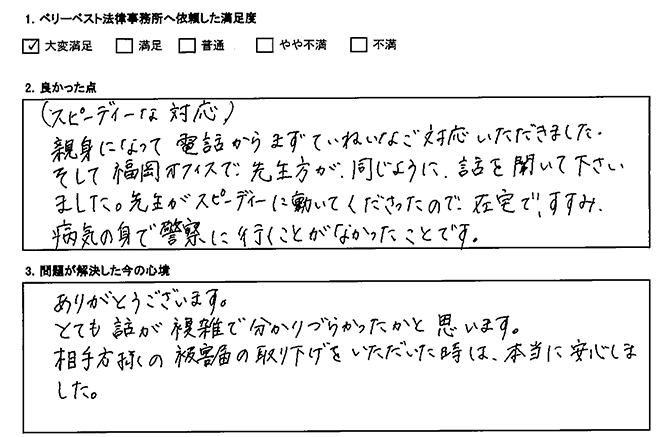 1. ベリーベスト法律事務所へ依頼した満足度
☑ 大変満足 □ 満足 □ 普通 □ やや不満 □ 不満
2. 良かった点
(スピーディーな対応)
親身になって電話からまずていねいなご対応いただきました。
そして福岡オフィスで、先生方が、同じように、話を聞いて下さい
ました。先生がスピーディーに動いてくださったので、在宅で、すすみ、
病気の身で警察に行くことがなかったことです。
3. 問題が解決した今の心境
ありがとうございます。
とても話が複雑で分かりづらかったかと思います。
相手方様の被害届の取り下げをいただいた時は、本当に安心しま
した。